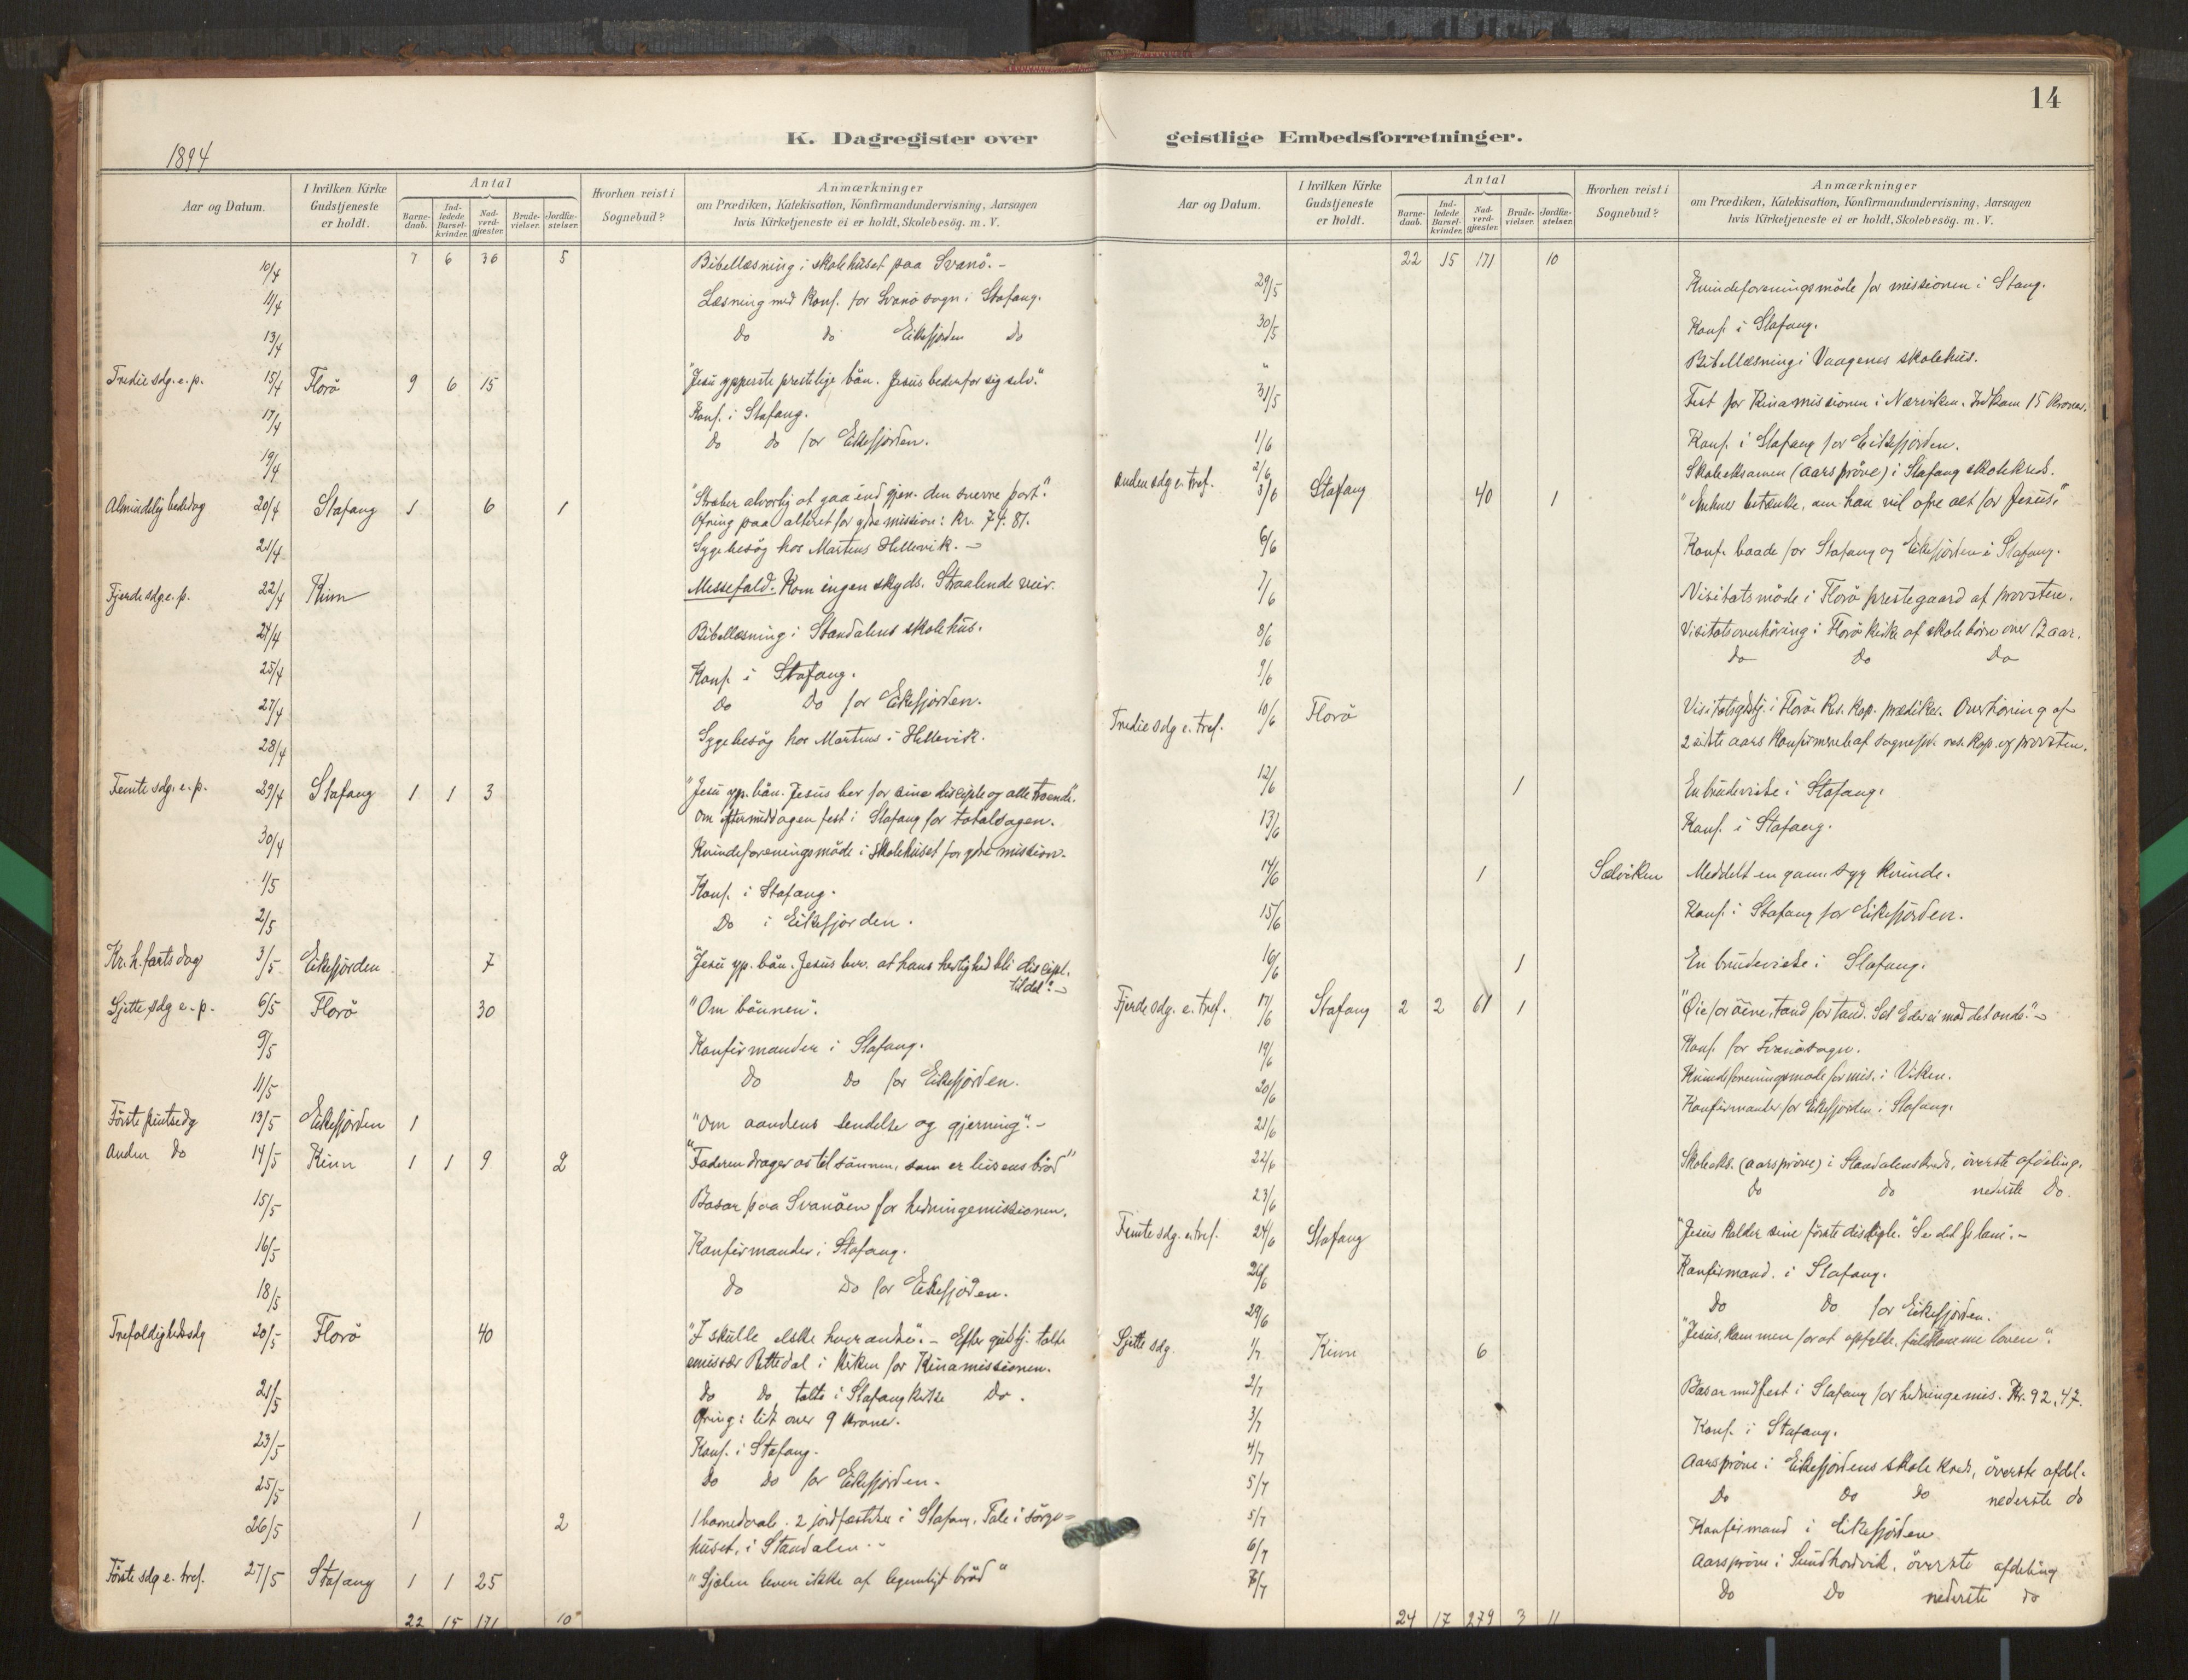 14
K. Dagregister over geistlige Embedsforretninger.
1894
Aar og Datum. I hvilken Kirke Gudstjeneste er holdt. Antal Barnedaab. Indledede Barselkvinder. Nadverdgjæster. Brudevielser. Jordfæstelser. Hvorhen reist i Sognebud? Anmærkninger om Prædiken, Katekisation, Konfirmandundervisning, Aarsagen hvis Kirketjeneste ei er holdt, Skolebesög. m. V.
10/4 7 6 36 5 Bibellæsning i skolehuset paa Svanö. -
11/4 Læsning med Konf. for Svanö sogn i Stafang.
13/4 Do do Eikefjorden do
Tredie sdg. e. p. 15/4 Florö 9 6 15 "Jesu ypperste prestelige bön. Jesus beder for sig selv."
17/4 Konf. i Stafang.
19/4 Do do for Eikefjorden.
Almindelig bededag 20/4 Stafang 1 6 1 "Stræber alvorlig at gaa ind gjen. den snevre port."
Ofring paa alteret for ydre mission: Kr. 74.81.
21/4 Sygebesög hos Martens Hellevik. -
Fjerde sdg. e. p. 22/4 Kinn Messefald. Kom ingen skyds. Straalende veir.
24/4 Bibellæsning i Standalens skolehus.
25/4 Konf. i Stafang.
27/4 Do Do for Eikefjorden.
28/4 Sygebesög hos Martens i Hellevik.
Femte sdg. e. p. 29/4 Stafang 1 1 3 "Jesu yp. bön. Jesus ber for sine disciple og alle troende."
Om eftermiddagen fest i Stafang for totalsagen.
30/4 Kvindeforeningsmöde i Skolehuset for ydre mission.
1/5 Konf. i Stafang.
2/5 Do i Eikefjorden.
Kr. h. fartsdag 3/5 Eikefjorden 7 "Jesu yp. bön. Jesus ber. at hans herlighed bli discipl.
til del". -
Sjette sdg e. p. 6/5 Florö 30 "Om bönnen".
9/5 Konfirmander i Stafang.
11/5 Do Do for Eikefjorden.
Förste pintsedg 13/5 Eikefjorden 1 "Om aandens sendelse og gjerning". -
Anden Do 14/5 Kinn 1 1 9 2 "Faderen drager os til sönnen, som er livsens bröd"
15/5 Basar paa Svanöen for hedningemissionen.
16/5 Konfirmander i Stafang.
18/5 Do Do for Eikefjorden.
Trefoldighedssdg 20/5 Florö 40 "I skulle elske hverandre". - Efter gudstj. talte
emissær Rettedal i kirken for Kinamissionen.
21/5 Do Do talte i Stafang kirke Do.
Ofring: lidt over 9 kroner.
23/5 Konf. i Stafang.
25/5 Do Do for Eikefjorden.
26/5 1 2 1 barnedaab. 2 jordfæstelser i Stafang. Tale i sörge=
huset, i Standalen. -
Förste sdg e. tref. 27/5 Stafang 1 1 25 "Sjælen lever ikke af legemligt bröd"
22 15 171 10
Aar og Datum. I hvilken Kirke Gudstjeneste er holdt. Antal Barnedaab. Indledede Barselkvinder. Nadverdgjæster. Brudevielser. Jordfæstelser. Hvorhen reist i Sognebud? Anmærkninger om Prædiken, Katekisation, Konfirmandundervisning, Aarsagen hvis Kirketjeneste ei er holdt, Skolebesög. m. V.
22 15 171 10
29/5 Kvindeforeningsmöde for missionen i Stang.
30/5 Konf. i Stafang.
" Bibellæsning i Vaagenes skolehus.
31/5 Fest for Kinamissionen i Nærviken. Indkom 15 Kroner.
1/6 Konf. i Stafang for Eikefjorden.
2/6 Skoleeksamen (aarspröve) i Stafang skolekreds.
Anden sdg e. tref. 3/6 Stafang 40 1 "Enhver betænke, om han vil ofre alt for Jesus."
6/6 Konf. baade for Stafang og Eikefjorden i Stafang.
7/6 Visitatsmöde i Florö prestegaard af provsten.
8/6 Visitatsoverhöring i Florö kirke af skolebörn over 12 aar.
9/6 Do Do Do
Tredie sdg e. tref. 10/6 Florö Visitatsgdstj. i Florö. Res. Kap. prædiker. Overhöring af
2 sidste aars Konfirmerede af sognepr. res. Kap. og provsten.
12/6 1 En brudevielse i Stafang.
13/6 Konf. i Stafang.
14/6 1 Sælviken Meddelt en gam. syg kvinde.
15/6 Konf. i Stafang for Eikefjorden.
16/6 1 En brudevielse i Stafang.
Fjerde sdg. e. tref. 17/6 Stafang 2 2 61 1 "Öie for öine, tand for tand. Set Eder ei mod det onde". -
19/6 Konf. for Svanö sogn.
20/6 Kvindeforeningsmöde for mis. i Viken.
21/6 Konfirmander for Eikefjorden i Stafang.
22/6 Skoleeks. (aarspröve) i Standalens kreds, överste afdeling.
23/6 Do do nederste Do.
Femte sdg. e. tref. 24/6 Stafang "Jesus kalder sine förste disciple." Se det Gs lam". -
26/6 Konfirmand. i Stafang.
29/6 Do Do for Eikefjorden.
Sjette sdg. 1/7 Kinn 6 "Jesus, kommen for at opfylde, fuldkomme loven".
2/7 Basar med fest i Stafang for hedningemis. Kr. 92,47.
3/7 Konf. i Stafang.
4/7 Aarspröve i Eikefjordens skolekreds, överste afdel.
5/7 Do Do Do nederste do
5/7 Konfirmand i Eikefjorden
6/7 Aarspröve i överste afdeling
7/7 Do Do nederste do
24 17 279 3 11